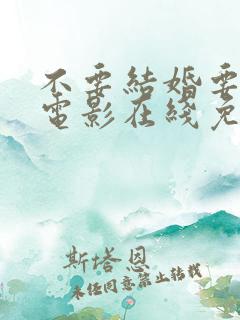 不要結婚要
電影在綫免
斯塔恩
未經同意禁止轉載